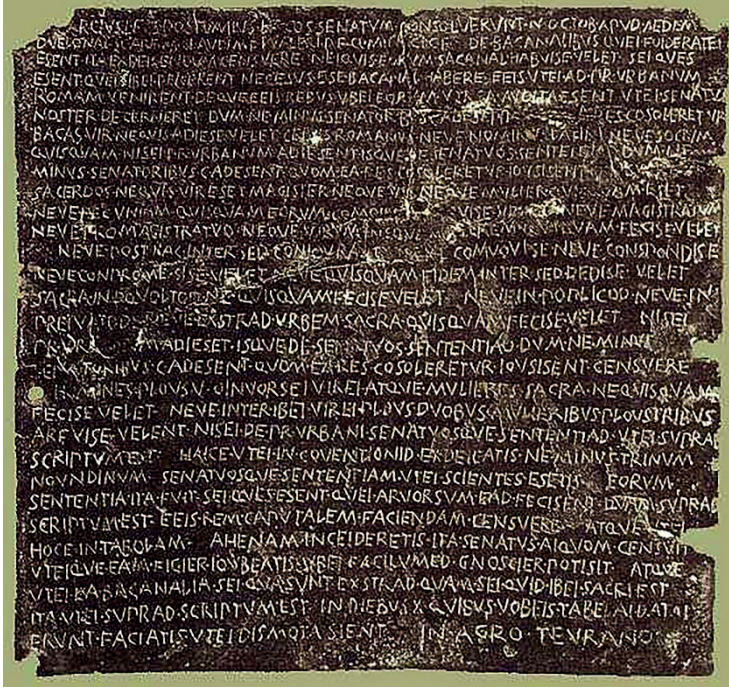 SENATVM CONSOLVERVNT·N·OCTOB·APVD·AEDEM
DVELONAI DE·BACANALIBVS·QVEI·FOIDERATEI
ESENT·ITA CENSVERE NEIQVIS·EORVM·SACANAL·HABVISE·VELET SEI·QVES
ESENT·QVEI·SIBEI·DEICERENT NECESVS·ESE·BACANAL·HABERE·EEIS·VTEI·AD·PR·VRBANVM
ROMAM·VENIRENT·DEQVE·EEIS·REBVS·VBEI·EORVM ESENT·VTEI·SENATV
NOSTER·DECERNERET·DVM·NE·MINVS·SENATORBVS·C·ADESENT RES·COSOLERETVR
BACAS·VIR·NEQVIS·ADIESE·VELET ROMANVS·NEVE·NOMINVS LATINI NEVE·SOCIVM
QVISQVAM·NISEI·PR·VRBANVM·ADIESENT·ISQVE·DE·SENATVOS·SENTENTIAD·DVM·NE
MINVS·SENATORIBVS·C·ADESENT·QVOM·EA·RES·COSOLERETVR·IOVSISENT
SACERDOS·NEQVIS·VIR·ESET·MAGISTER·NEQVE NEQVE·MVLIER·QVISQVAM·ESET
NEVE·PECVNIAM·QVISQVAM·EORVM·COMOINEM NEVE·MAGISTRATVM
NEVE·PRO·MAGISTRATVD·NEQVE·VIRVM FECISE·VELET
NEVE·POST·HAC·INTER·SED·CONIOVRA COMVOVISE·NEVE·CONSPONDISE
NEVE·CONPROMESISE·VELET QVISQVAM·FIDEM·INTER·SED·DEDISE·VELET
SACRA·IN·DQVOLTOD·NE·QVISQVAM·FECISE·VELET NEVE·IN·POPLICOD·NEVE·IN
PREIVATOD·NEVE·EXSTRAD·VRBEM·SACRA·QVISQVAM·FECISE·VELET NISEI
PR ADIESET·ISQVE·DE·SENATVOS·SENTENTIAD·DVM·NE·MINVS
SENATORIBVS·C·ADESENT·QVOM·EA·RES·COSOLERETVR·IOVSISENT CENSVERE
HOMINES·PLOVS·V·OINVORSEI·VIREI·ATQVE·MVLIERES·SACRA·NE·QVISQVAM
FECISE·VELET NEVE·INTER·IBEI·VIREI·PLOVS·DVOBVS·MVLIERIBVS·PLOVS·TRIBVS
ARFVISE·VELENT·NISEI·DE·PR·VRBANI·SENATVOSQVE·SENTENTIAD·VTEI·SVPRAD
SCRIPTVM·EST HAICE·VTEI·IN·COVENTIONID·EXDEICATIS·NE·MINVS·TRINVM
NOVNDINVM SENATVOSQVE·SENTENTIAM·VTEI·SCIENTES·ESETIS EORVM
SENTENTIA·ITA·FVIT·SEI·QVES·ESENT·QVEI·ARVORSVM·EAD·FECISENT·QVAM·SVPRAD
SCRIPTVM·EST·EEIS·REM·CAPVTALEM·FACIENDAM·CENSVERE ATQVE·VTEI
HOCE·IN·TABOLAM· AHENAM·INCEIDERETIS·ITA·SENATVS·AIQVOM·CENSVIT
VTEIQVE·EAM·FIGIER·IOVBEATIS·VBEI·FACILVMED·GNOSCIER·POTISIT ATQVE
VTEI·EA·BACANALIA·SEI·QVA·SVNT·EXSTRAD·QVAM·SEI·QVID·IBEI·SACRI·EST
ITA·VTEI·SVPRAD·SCRIPTVM·EST IN·DIEBVS·X·QVIBVS·VOBEIS·TABELAI·DATAI
ERVNT·FACIATIS·VTEI·DISMOTA·SIENT IN·AGRO·TEVRANO